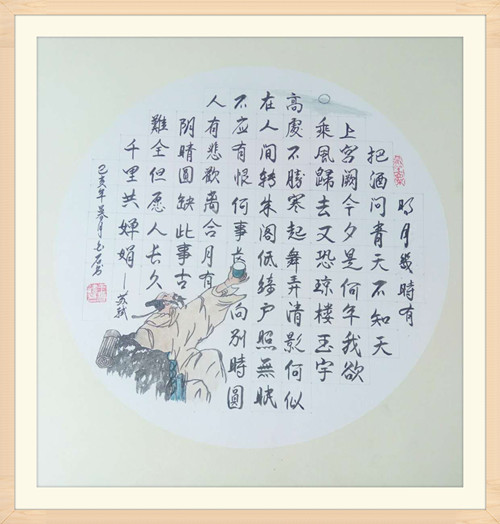 明月幾時有
把酒问青天不知天
上宫阙今夕是何年我欲
乘風歸去又恐琼楼玉宇
高處不勝寒起舞弄清影何似
在人间转朱阁低绮户照無眠
不应有恨何事长向别時圆
人有悲歡离合月有
阴晴圆缺此事古
難全但愿人长久
千里共婵娟—苏轼
己亥年